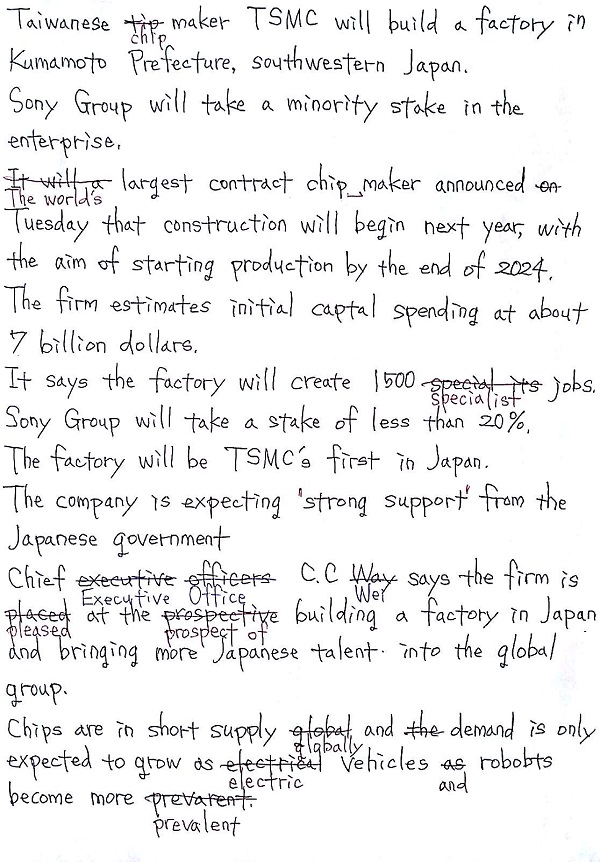 Taiwanese tip maker TSMC will build a factory in
chip
Kumamoto Prefecture, southwestern Japan.
Sony Group will take a minority stake in the
enterprise.
It will a largest contract chip maker announced on
The world's
Tuesday that construction will begin next year, with
the aim of starting production by the end of 2024.
The firm estimates initial captal spending at about
7 billion dollars.
It says the factory will create 1500 special its jobs.
specialist
Sony Group will take a stake of less than 20%.
The factory will be TSMC's first in Japan.
The company is expecting 'strong support' from the
Japanese government
Chief executive officers C.C Way says the firm is
Executive Office Wei
placed at the prospective building a factory in Japan
pleased prospect of
and bringing more Japanese talent. into the global
group.
Chips are in short supply global and the demand is only
globally
expected to grow as electrical vehicles as robobts
electric and
become more prevarent.
prevalent